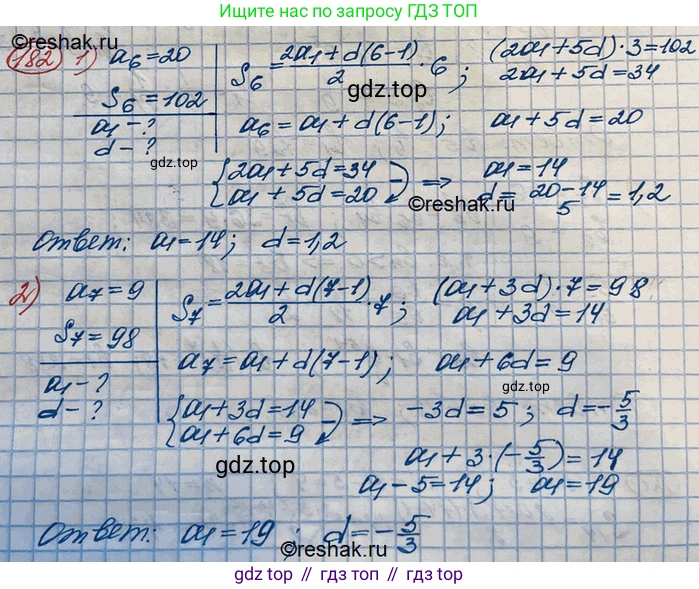 Ищите в поисковике по запросу ГДЗ ТОП
©reshak.ru
182 1) a₆=20
S₆=102
a₁-?
d-?
S₆=(2a₁+d(6-1))/2·6; (2a₁+5d)·3=102
2a₁+5d=34
gdz.top
a₆=a₁+d(6-1); a₁+5d=20
gdz.top
{2a₁+5d=34
a₁+5d=20 ⇒ a₁=14
d=(20-14)/5=1,2
©reshak.ru
Ответ: a₁=14; d=1,2
2) a₇=9
S₇=98
a₁-?
d-?
S₇=(2a₁+d(7-1))/2·7; (a₁+3d)·7=98
a₁+3d=14
a₇=a₁+d(7-1); a₁+6d=9
gdz.top
{a₁+3d=14
a₁+6d=9 ⇒ -3d=5; d=-5/3
gdz.top
a₁+3·(-5/3)=14
a₁-5=14; a₁=19
Ответ: a₁=19; d=-5/3
©reshak.ru
gdz.top // гдз.топ // gdz.top // гдз.топ // gdz.top